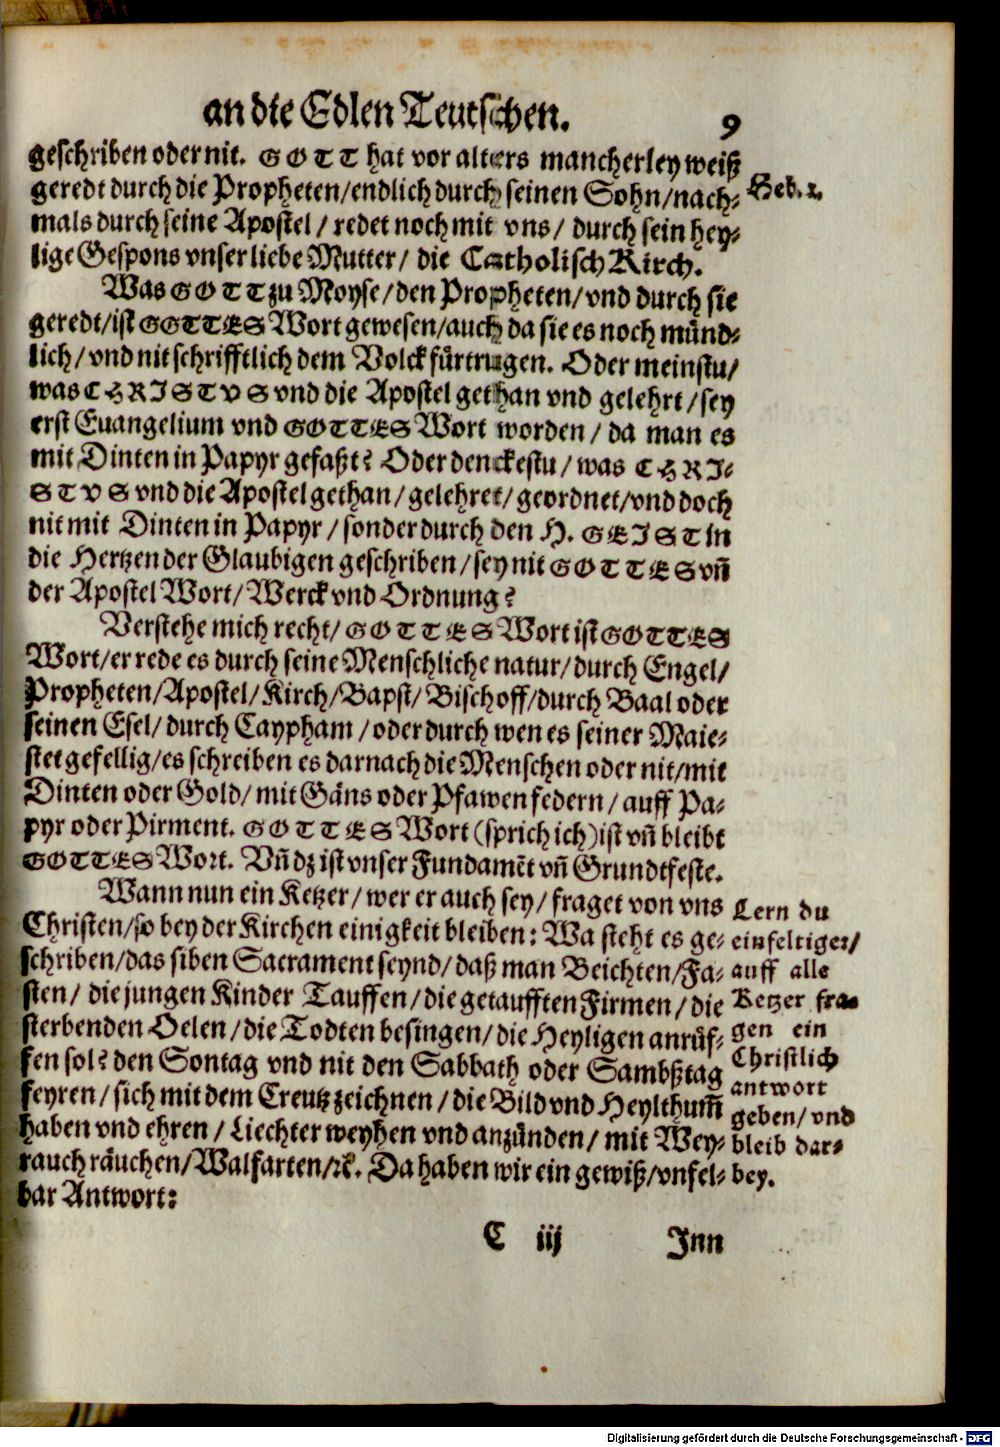 an die Edlen Teutschen. 9
geschriben oder nit. GOTT hat vor alters mancherley weiß
geredt durch die Propheten/endlich durch seinen Sohn/nach-
mals durch seine Apostel/ redet noch mit vns/ durch sein hey-
lige Gespons vnser liebe Mutter/ die Catholisch Kirch.
Heb. 1.
Was GOTT zu Moyse/den Propheten/vnd durch sie
geredt/ist GOTTES Wort gewesen/auch da sie es noch münd-
lich/vnd nit schrifftlich dem Volck fürtrugen. Oder meinstu/
was CHRISTVS vnd die Apostel gethan vnd gelehrt/sey
erst Euangelium vnd GOTTES Wort worden/ da man es
mit Dinten in Papyr gefaßt? Oder denckestu/ was CHRI-
STVS vnd die Apostel gethan/gelehret/geordnet/vnd doch
nit mit Dinten in Papyr/sonder durch den H. GEIST in
die Hertzen der Glaubigen geschriben/sey nit GOTTES vñ
der Apostel Wort/Werck vnd Ordnung?
Verstehe mich recht/GOTTES Wort ist GOTTES
Wort/er rede es durch seine Menschliche natur/durch Engel/
Propheten/Apostel/Kirch/Bapst/Bischoff/durch Baal oder
seinen Esel/durch Caypham/oder durch wen es seiner Maie-
stet gefellig/es schreiben es darnach die Menschen oder nit/mit
Dinten oder Gold/mit Gäns oder Pfawen federn/auff Pa-
pyr oder Pirment. GOTTES Wort (sprich ich) ist vñ bleibt
GOTTES Wort. Vñ dz ist vnser Fundamẽt vñ Grundtfeste.
Wann nun ein Ketzer/wer er auch sey/fraget von vns
Christen/so bey der Kirchen einigkeit bleiben: Wa steht es ge-
schriben/das siben Sacrament seynd/daß man Beichten/Fa-
sten/ die jungen Kinder Tauffen/die getaufften Firmen/die
sterbenden Oelen/die Todten besingen/die Heyligen anrüf-
fen sol? den Sontag vnd nit den Sabbath oder Sambßtag
feyren/sich mit dem Creutz zeichnen/die Bild vnd Heylthum̃
haben vnd ehren/Liechter weyhen vnd anzünden/mit Wey-
rauch räuchen/Walfarten/ꝛc. Da haben wir ein gewiß/vnfel-
bar Antwort:
Lern du
einfeltiger/
auff alle
Ketzer fra-
gen ein
Christlich
antwort
geben/vnd
bleib dar-
bey.
C iij Inn
Digitalisierung gefördert durch die Deutsche Forschungsgemeinschaft - DFG